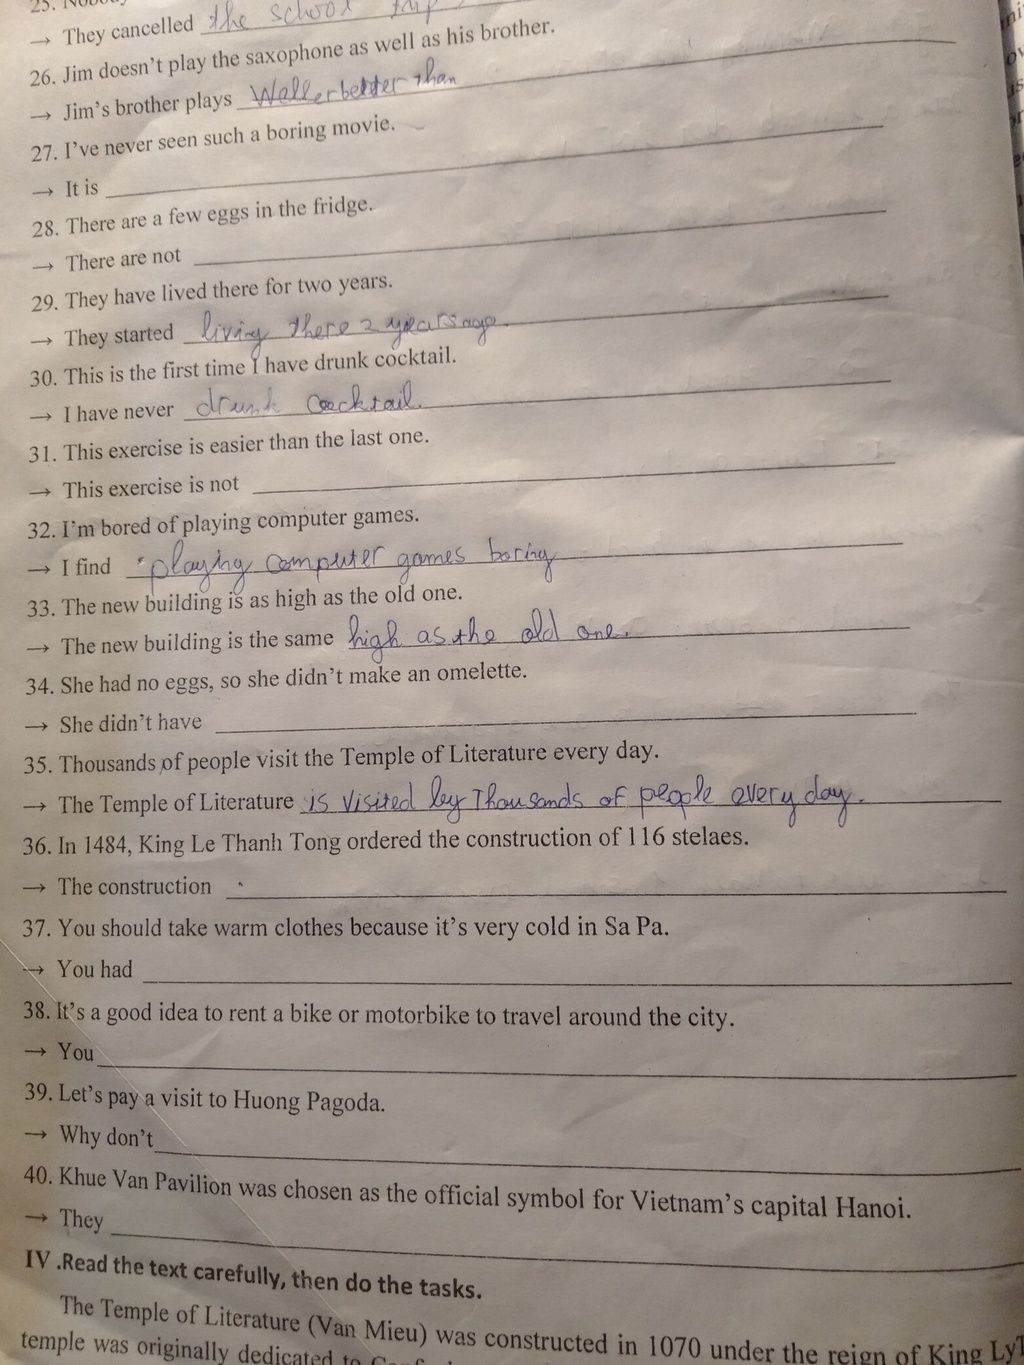 25. Nobody
→ They cancelled the school trip
26. Jim doesn't play the saxophone as well as his brother.
→ Jim's brother plays better than
27. I've never seen such a boring movie.
→ It is
28. There are a few eggs in the fridge.
→ There are not
29. They have lived there for two years.
→ They started living there 2 years ago.
30. This is the first time I have drunk cocktail.
→ I have never drunk cocktail.
31. This exercise is easier than the last one.
→ This exercise is not
32. I'm bored of playing computer games.
→ I find playing computer games boring
33. The new building is as high as the old one.
→ The new building is the same high as the old one.
34. She had no eggs, so she didn't make an omelette.
→ She didn't have
35. Thousands of people visit the Temple of Literature every day.
→ The Temple of Literature is visited by Thousands of people every day.
36. In 1484, King Le Thanh Tong ordered the construction of 116 stelaes.
→ The construction
37. You should take warm clothes because it's very cold in Sa Pa.
→ You had
38. It's a good idea to rent a bike or motorbike to travel around the city.
→ You
39. Let's pay a visit to Huong Pagoda.
→ Why don't
40. Khue Van Pavilion was chosen as the official symbol for Vietnam's capital Hanoi.
→ They
IV .Read the text carefully, then do the tasks.
The Temple of Literature (Van Mieu) was constructed in 1070 under the reign of King Ly
temple was originally dedicated to